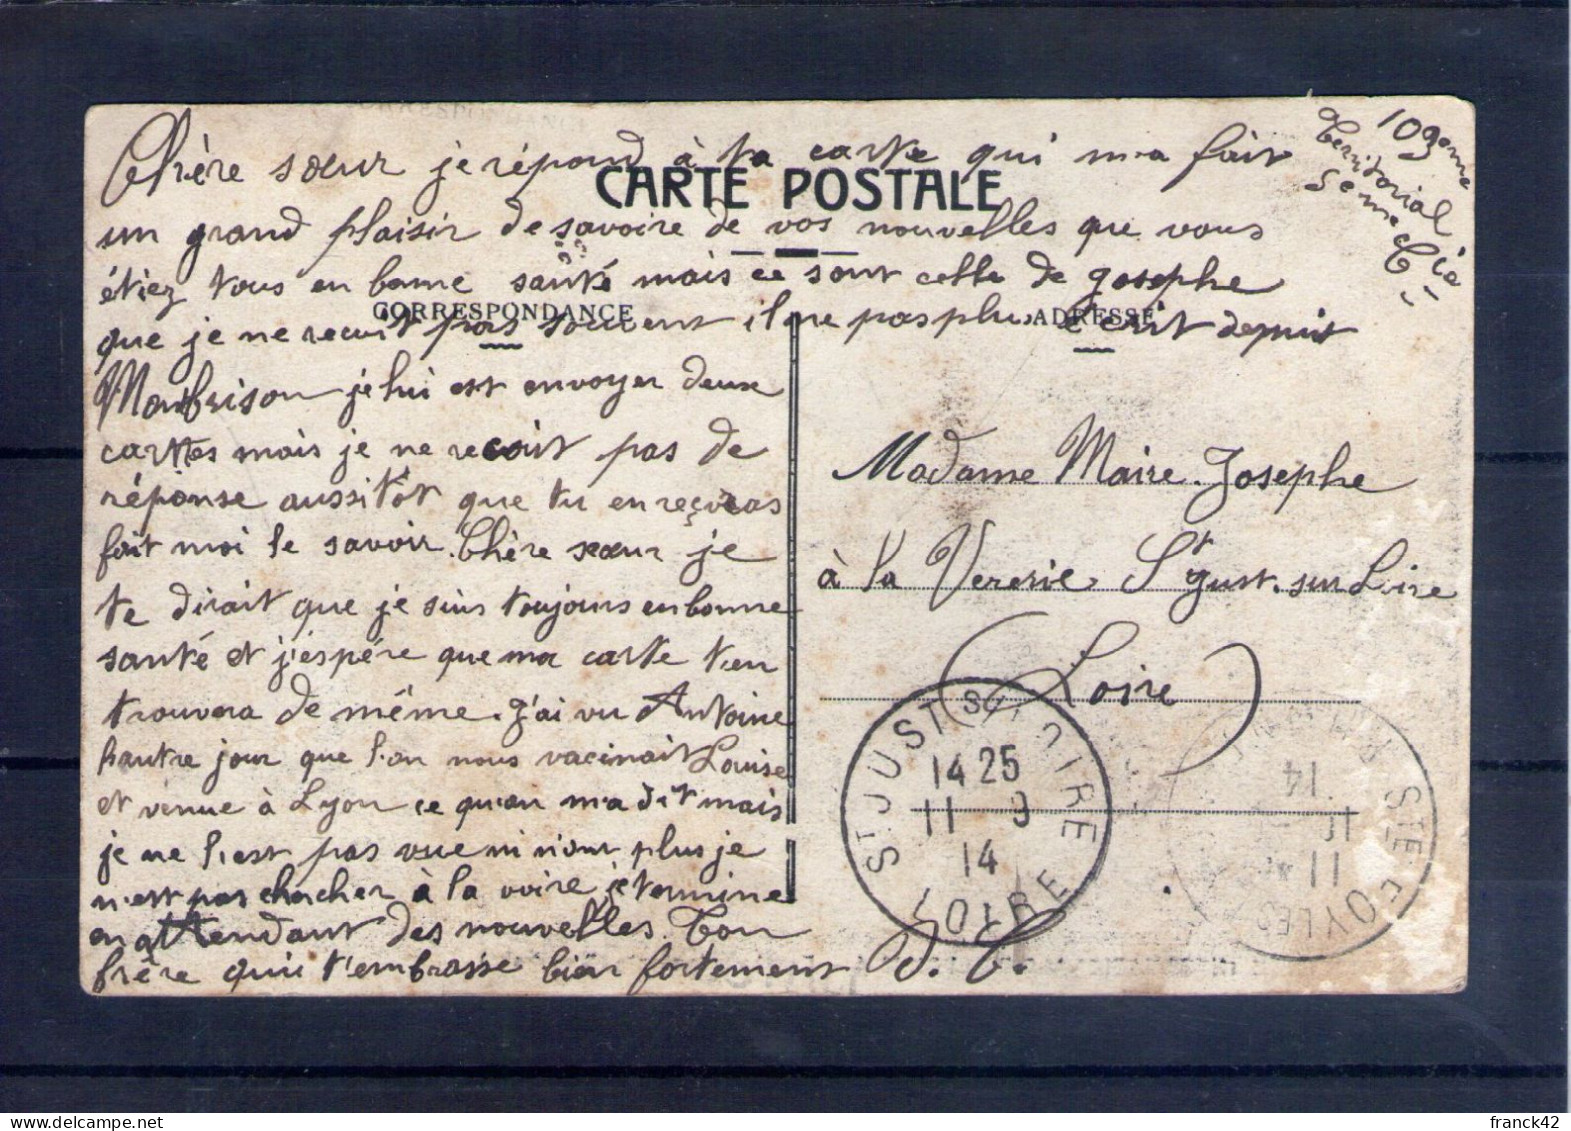 Chère sœur je répond à ta carte qui m'a fait
un grand plaisir de savoire de vos nouvelles que vous
étiez tous en bonne santé mais ce sont celle de Josephe
que je ne recoit pas souvent il ne pas plus écrit depuit
Montbrison je lui est envoyer deux
cartes mais je ne recoit pas de
réponse aussitôt que tu en reçevras
fait moi le savoir. Chère sœur je
te dirait que je suis toujours en bonne
santé et j'éspére que ma carte t'en
trouvera de même. J'ai vu Antoine
hautre jour que l'on nous vacinait Louise
et venue à Lyon ce qu'on m'a dit mais
je ne l'est pas vue ni nour plus je
n'est pas chercher à la voire je termine
en attendant des nouvelles. Ton
frère qui t'embrasse bien fortement J. C.
CARTE POSTALE
CORRESPONDANCE
ADRESSE
109eme
Territorial
5eme Cie
Madame Maire. Josephe
à la Vererie St Just. sur Loire
(Loire)
ST JUST SUR LOIRE
14 25
11 - 9
14
LOIRE
STE FOY LES
14
11
14
franck42
www.delcampe.net